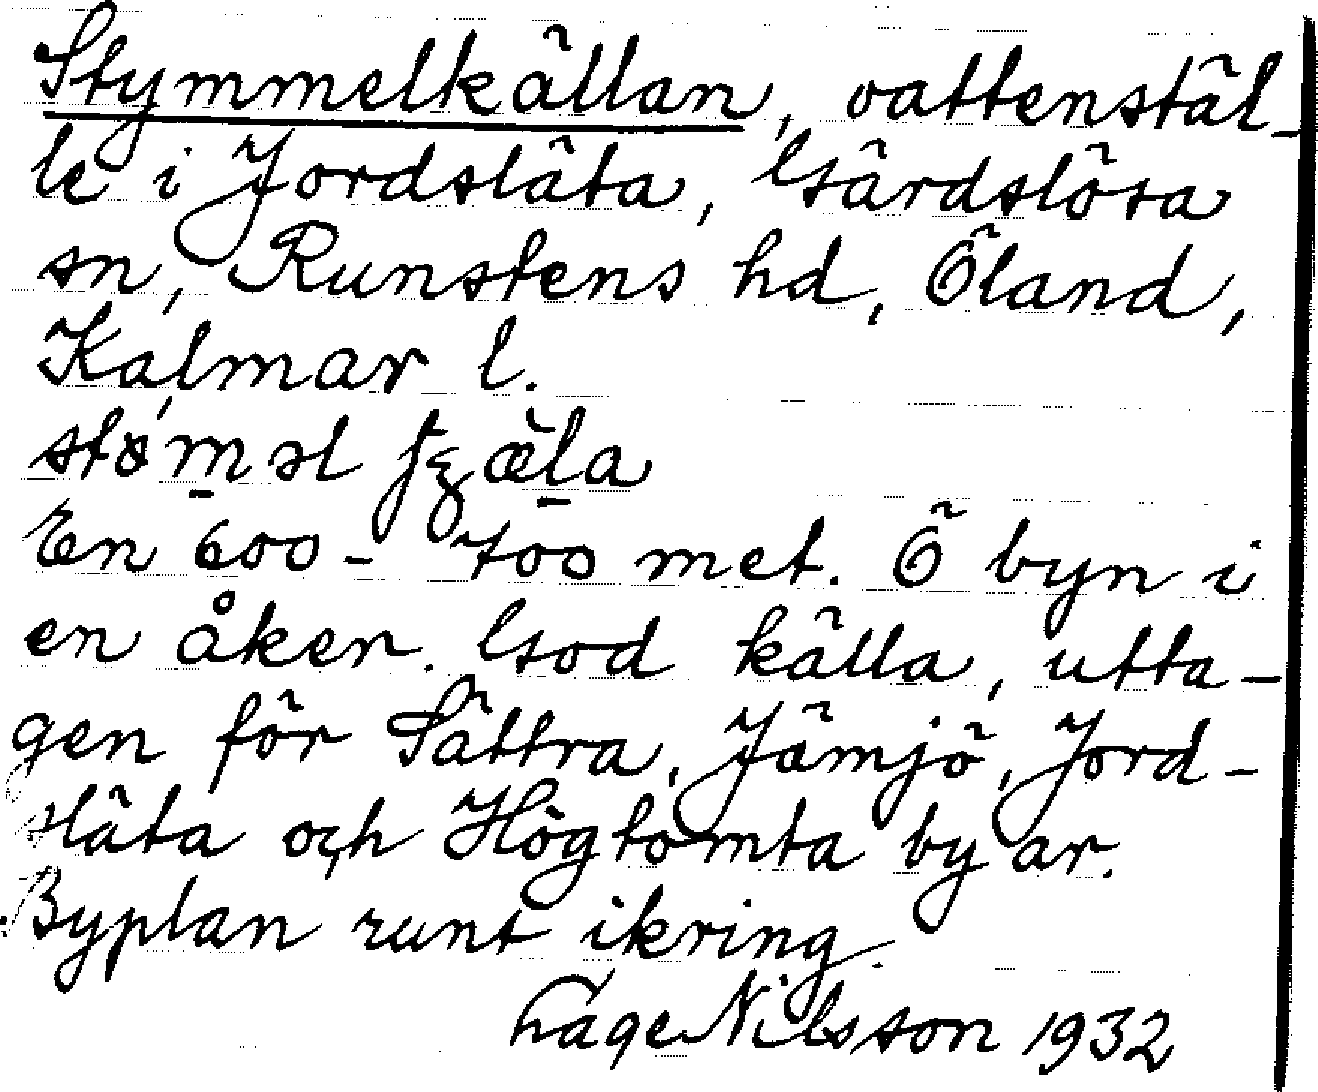 Stymmelkällan, vattenstäl-
le i Jordsläta, Gärdslösa
sn, Runstens hd, Öland,
Kalmar l.
En 600-700 met. Ö byn i
en åker. God källa, utta-
gen för Sättra, Jämjö, Jord-
släta och Högtomta byar.
Byplan runt ikring.
Håge Nilsson 1932